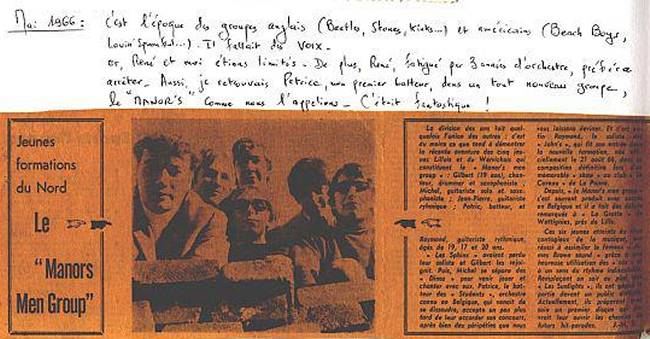 Mai 1966 : c'est l'époque des groupes anglais (Beatles, Stones, Kinks...) et américains (Beach Boys,
Lovin' Spoonful...) - Il fallait des VOIX -
or, René et moi étions limités - De plus, René, fatigué par 3 années d'orchestre, préférera
arrêter - Aussi, je retrouvais Patrice, mon premier batteur, dans un tout nouveau groupe,
le "MANOR'S" comme nous l'appelions - C'était fantastique !
Jeunes
formations
du Nord
Le
"Manors
Men Group"
La division des ans fait quel-
quefois l'union des autres : c'est
du moins ce que tend à démontrer
la récente aventure des cinq jeu-
nes Lillois et du Wervichois qui
constituent le « Manor's men
group » : Gilbert (19 ans), chan-
teur, drummer et saxophoniste ;
Michel, guitariste solo et saxo-
phoniste ; Jean-Pierre, guitariste
rythmique ; Patric, batteur, et
Raymond, guitariste rythmique,
âgés de 19, 17 et 20 ans.
« Les Sphinx » avaient perdu
leur soliste et Gilbert les rejoi-
gnit. Puis, Michel se sépara des
« Dinos » pour venir jouer et
chanter avec eux. Patric, le bat-
teur des « Students », orchestre
connu en Belgique, qui venait de
se dissoudre, accepta un pas plus
tard de leur accorder son concours,
après bien des péripéties que nous
vous laissons deviner. Et c'est
Raymond, le soliste
« John's », qui fit son entrée dans
la nouvelle formation,
ciellement le 21 août 66, dans
composition définitive
memorable « show » au club
Corona » de La Panne.
Depuis, « le Manor's men group »
s'est souvent produit avec
en Belgique et il a fait des
remarqués à « La Grotte »
Wattignies, près de Lille.
Ces six jeunes atteints du
contagieux de la musique, ont
réussi à assimiler la
mes Brown sound » grâce à
heureuse utilisation des
à un sens du rythme
Remplaçant un soir au
« Les Sunlights », ils ont
partie devant un public
Actuellement, ils préparent
soir un premier disque qui
vrait leur ouvrir les
futurs hit-parades.